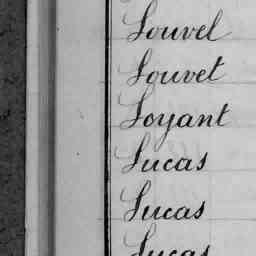 Louvel
Louvet
Loyant
Lucas
Lucas
Lucas